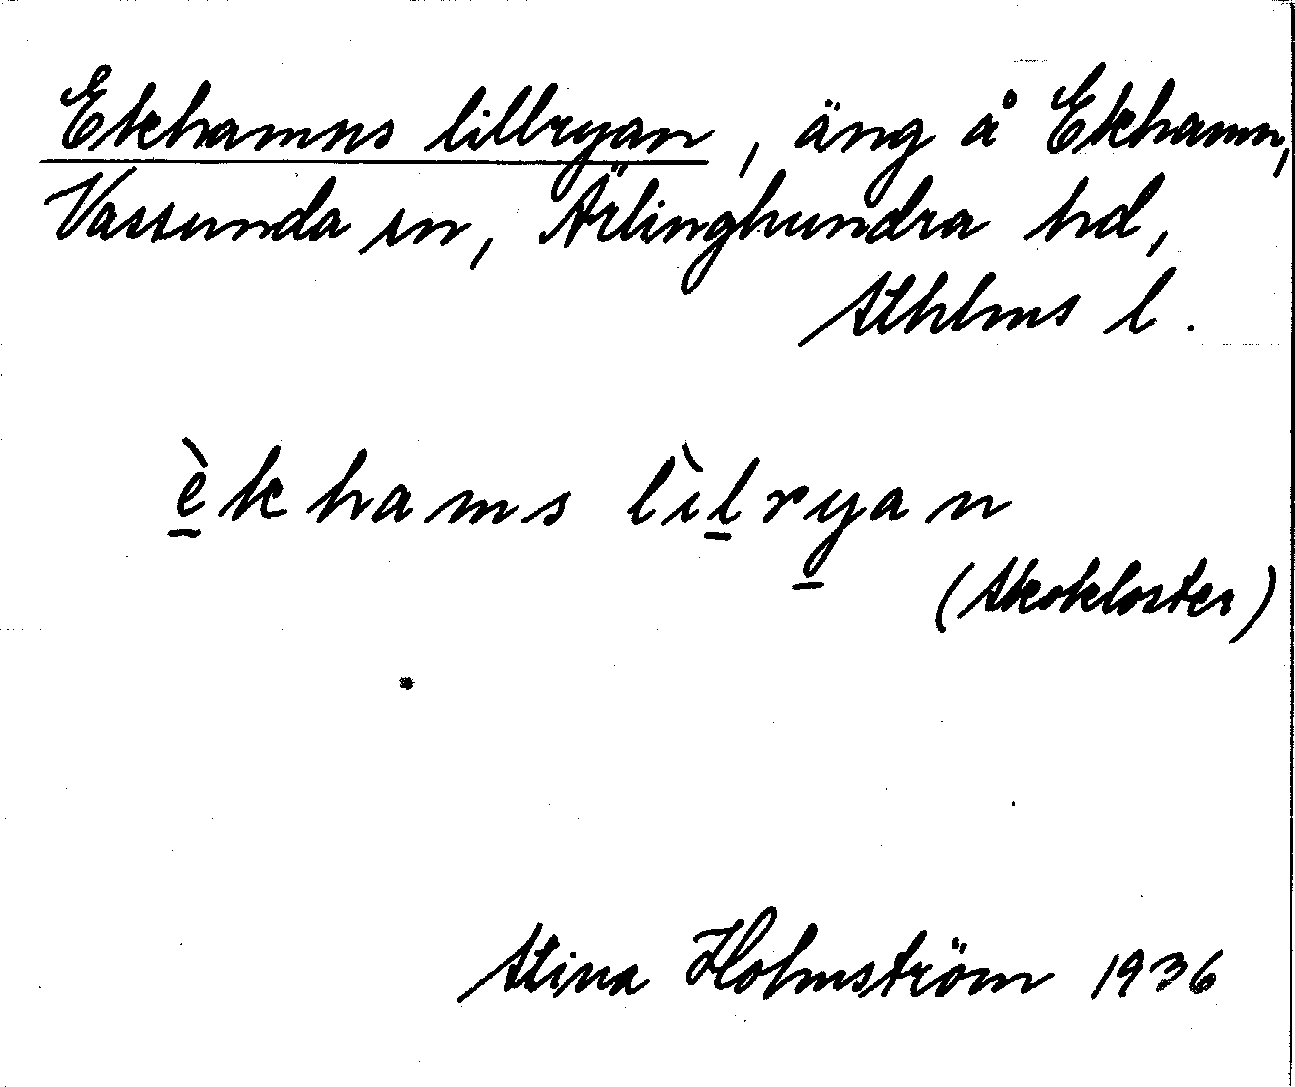 Ekhamns lillryan, äng å Ekhamn,
Vassunda sn, Ärlinghundra hd,
Sthlms l.
è̲khams lìl̲ry̲an
(Skokloster)
Stina Holmström 1936